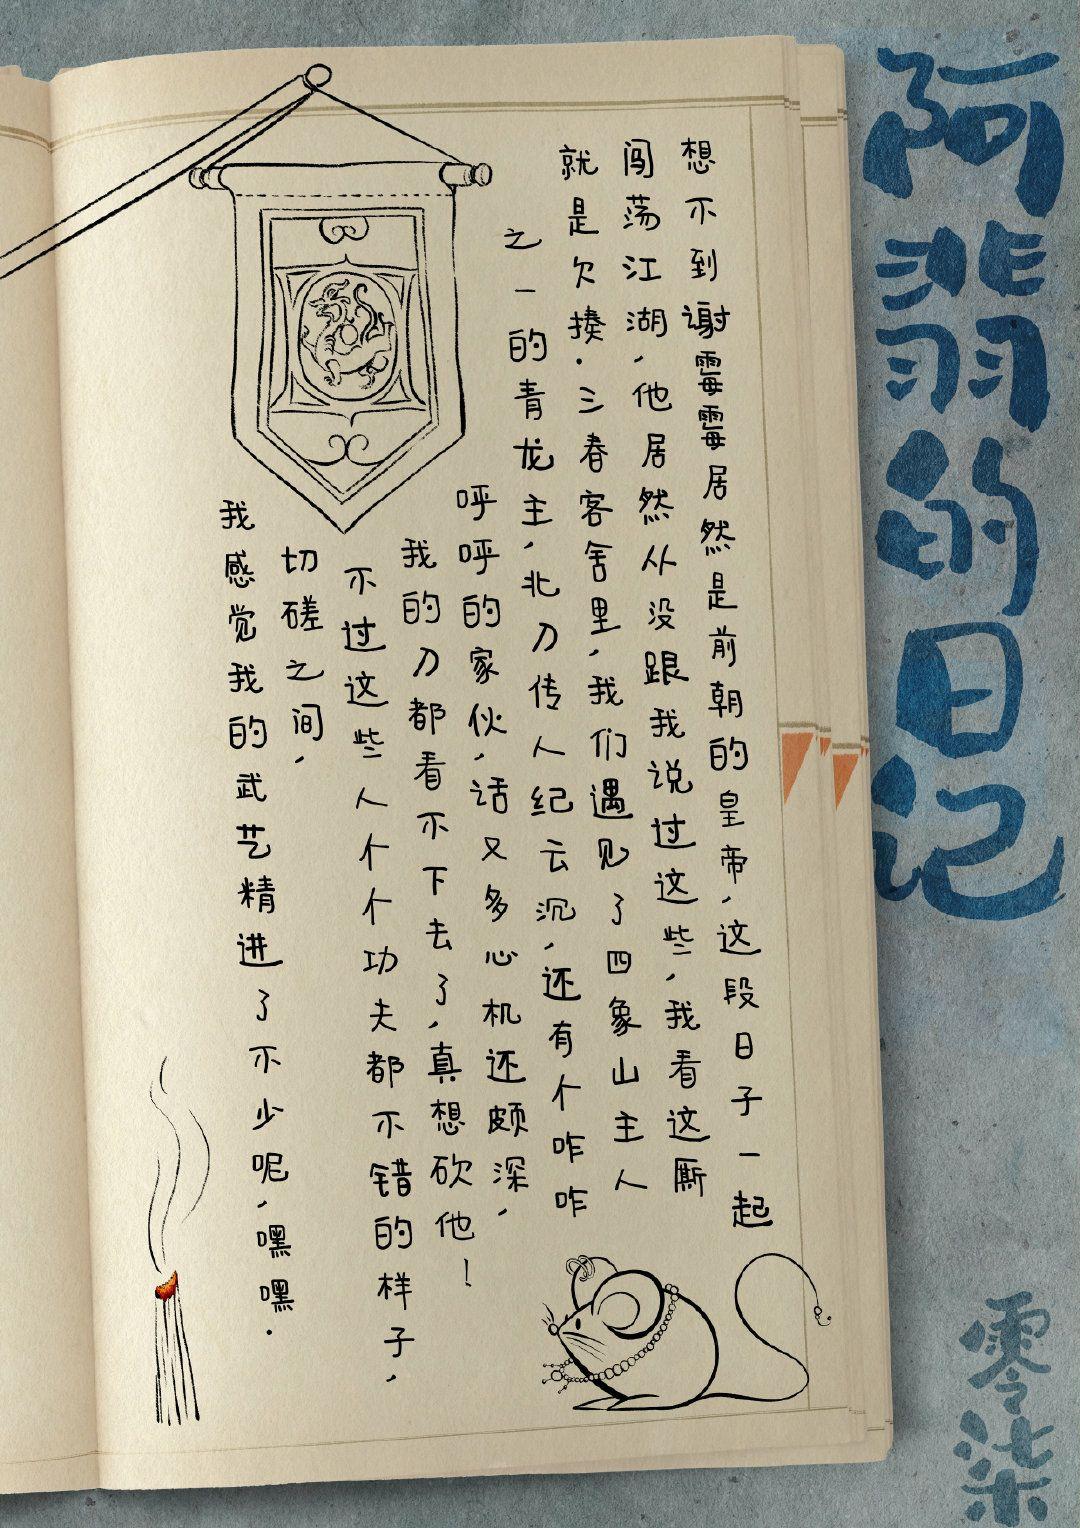 阿翡的日记
想不到谢霉霉居然是前朝的皇帝,这段日子一起
闯荡江湖,他居然从没跟我说过这些,我看这厮
就是欠揍.三春客舍里,我们遇见了四象山主人
之一的青龙主,北刀传人纪云沉,还有个咋咋
呼呼的家伙,话又多心机还颇深,
我的刀都看不下去了,真想砍他!
不过这些人个个功夫都不错的样子,
切磋之间,
我感觉我的武艺精进了不少呢,嘿嘿.
零柒